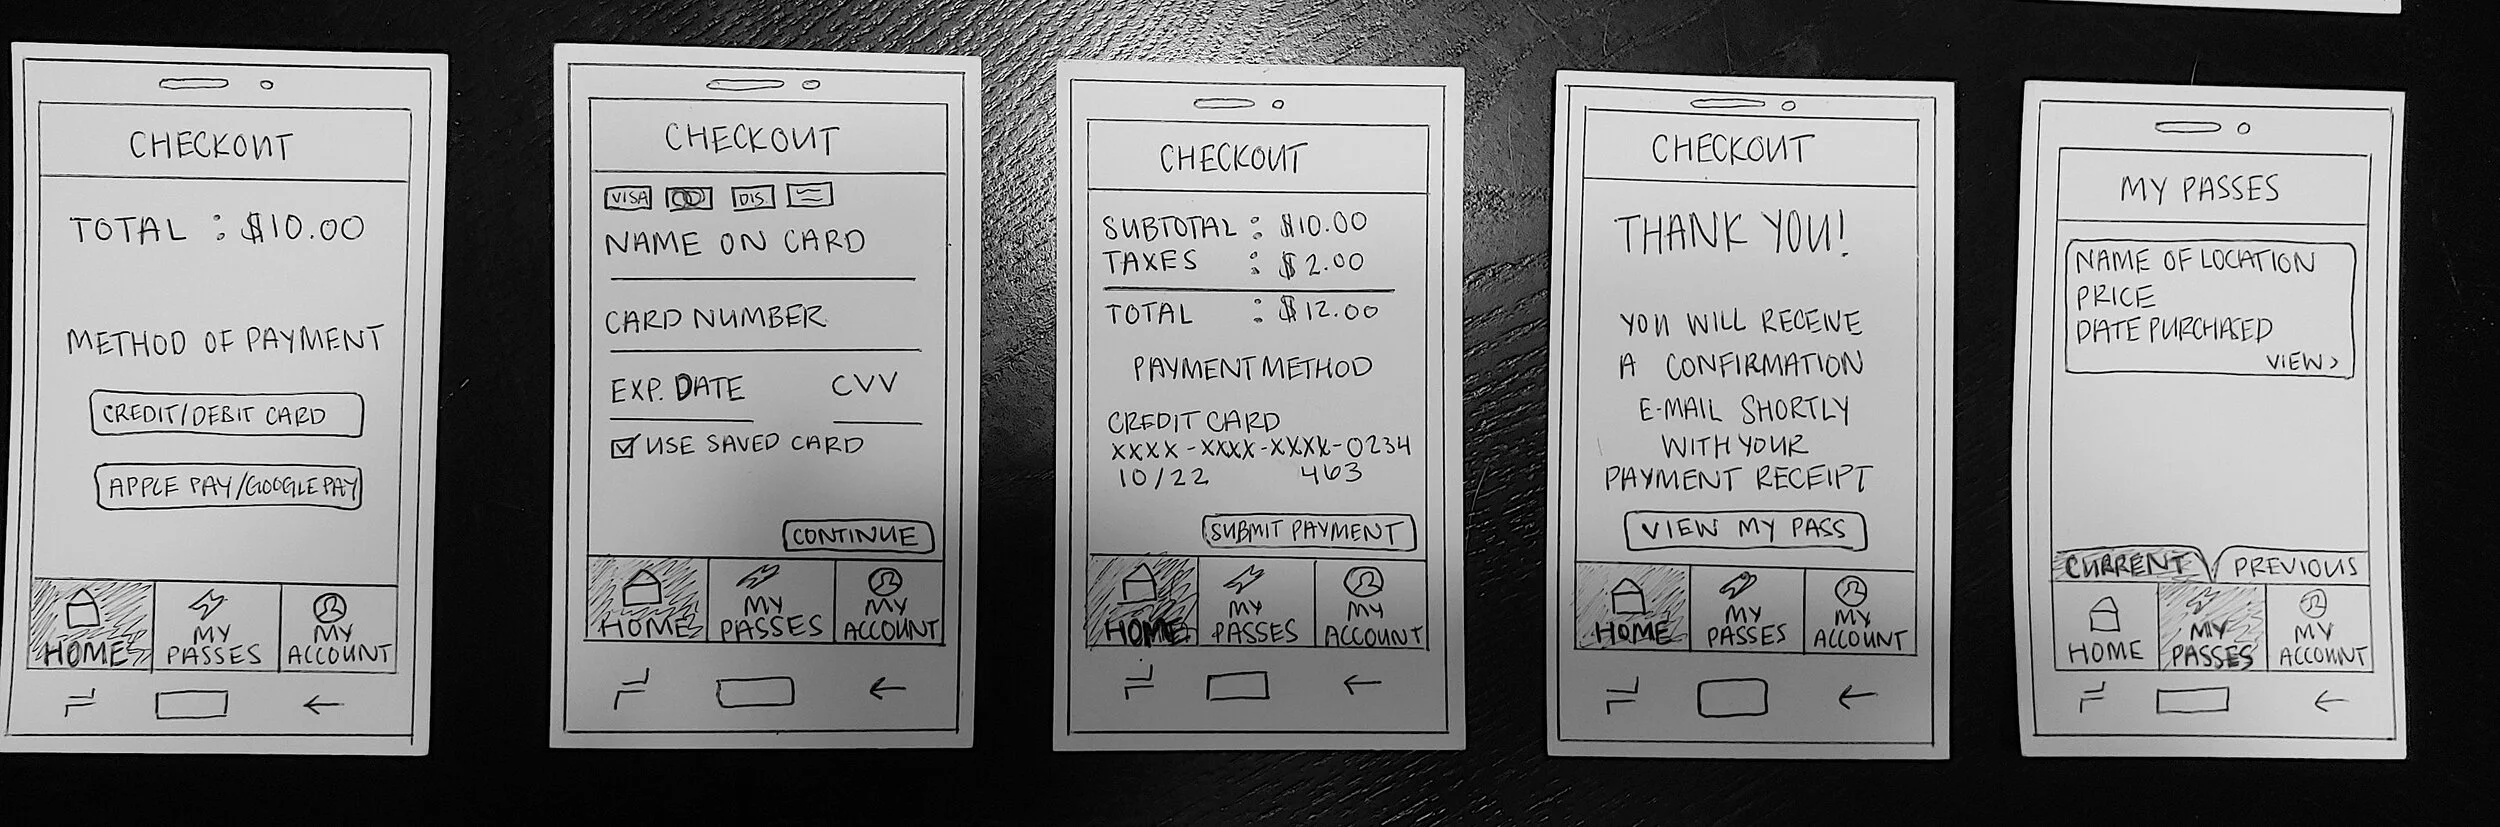 CHECKOUT
TOTAL : $10.00
METHOD OF PAYMENT
CREDIT/DEBIT CARD
APPLE PAY/GOOGLE PAY
HOME
MY PASSES
MY ACCOUNT
CHECKOUT
VISA
DIS.
NAME ON CARD
CARD NUMBER
EXP. DATE CVV
USE SAVED CARD
CONTINUE
HOME
MY PASSES
MY ACCOUNT
CHECKOUT
SUBTOTAL : $10.00
TAXES : $2.00
TOTAL : $12.00
PAYMENT METHOD
CREDIT CARD
XXXX-XXXX-XXXX-0234
10/22 463
SUBMIT PAYMENT
HOME
MY PASSES
MY ACCOUNT
CHECKOUT
THANK YOU!
YOU WILL RECEIVE
A CONFIRMATION
E-MAIL SHORTLY
WITH YOUR
PAYMENT RECEIPT
VIEW MY PASS
HOME
MY PASSES
MY ACCOUNT
MY PASSES
NAME OF LOCATION
PRICE
DATE PURCHASED
VIEW >
CURRENT PREVIOUS
HOME
MY PASSES
MY ACCOUNT